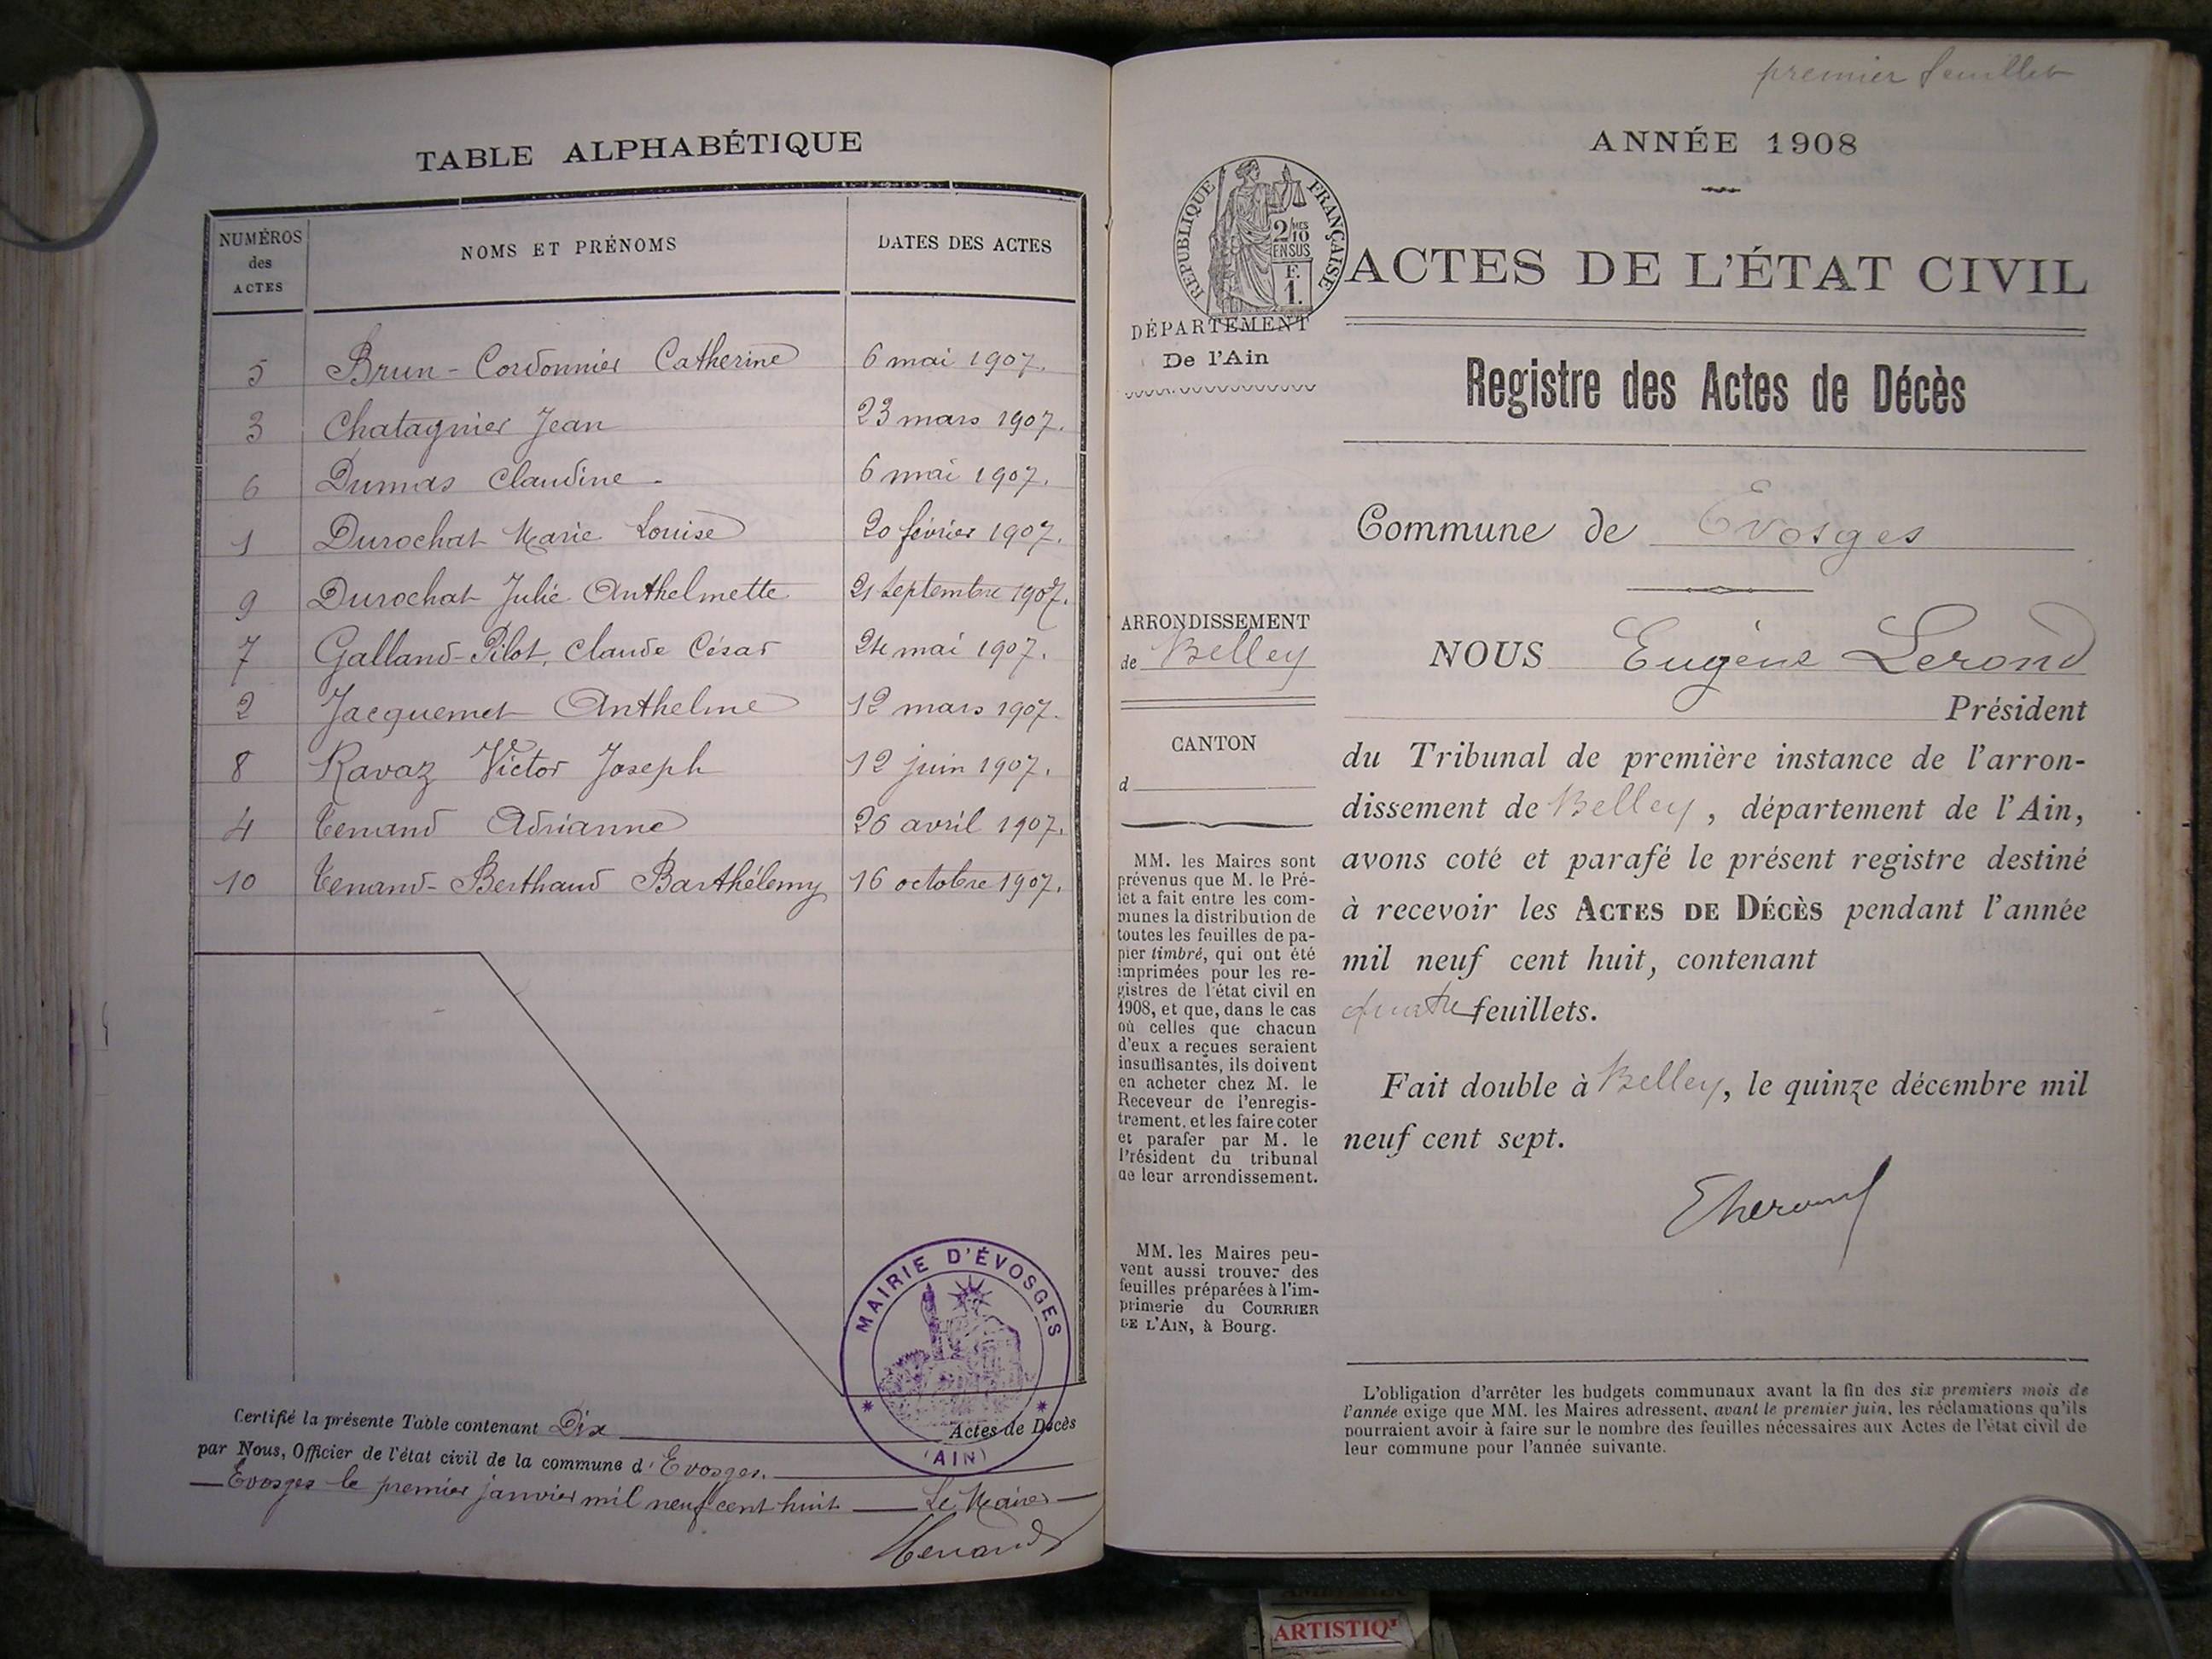 TABLE ALPHABÉTIQUE
NUMÉROS des ACTES NOMS ET PRÉNOMS DATES DES ACTES
5 Brun-Cordonnier Catherine 6 mai 1907.
3 Chatagnier Jean 23 mars 1907.
6 Dumas Claudine - 6 mai 1907.
1 Durochat Marie Louise 20 février 1907.
9 Durochat Julie Anthelmette 21 septembre 1907.
7 Galland-Pilot, Claude César 24 mai 1907.
2 Jacquemet Anthelme 12 mars 1907.
8 Ravaz Victor Joseph 12 juin 1907.
4 Tenand Adrianne 26 avril 1907.
10 Tenand-Berthaud Barthélemy 16 octobre 1907.
MAIRIE D'ÉVOSGES
(AIN)
Certifié la présente Table contenant Dix Actes de Décès
par Nous, Officier de l'état civil de la commune d'Evosges.
Evosges le premier janvier mil neuf cent huit Le Maire
Tenand
premier feuillet
ANNÉE 1908
RÉPUBLIQUE FRANÇAISE
2/10 MES
EN SUS
F.
1.
ACTES DE L'ÉTAT CIVIL
DÉPARTEMENT
De l'Ain
Registre des Actes de Décès
Commune de Evosges
ARRONDISSEMENT
de Belley
CANTON
d
MM. les Maires sont
prévenus que M. le Pré-
fet a fait entre les com-
munes la distribution de
toutes les feuilles de pa-
pier timbré, qui ont été
imprimées pour les re-
gistres de l'état civil en
1908, et que, dans le cas
où celles que chacun
d'eux a reçues seraient
insuffisantes, ils doivent
en acheter chez M. le
Receveur de l'enregis-
trement, et les faire coter
et parafer par M. le
Président du tribunal
de leur arrondissement.
MM. les Maires peu-
vent aussi trouver des
feuilles préparées à l'im-
primerie du COURRIER
DE L'AIN, à Bourg.
NOUS Eugène Lerond
Président
du Tribunal de première instance de l'arron-
dissement de Belley, département de l'Ain,
avons coté et parafé le présent registre destiné
à recevoir les ACTES DE DÉCÈS pendant l'année
mil neuf cent huit, contenant
quatre feuillets.
Fait double à Belley, le quinze décembre mil
neuf cent sept.
L'obligation d'arrêter les budgets communaux avant la fin des six premiers mois de
l'année exige que MM. les Maires adressent, avant le premier juin, les réclamations qu'ils
pourraient avoir à faire sur le nombre des feuilles nécessaires aux Actes de l'état civil de
leur commune pour l'année suivante.
ARTISTIQ